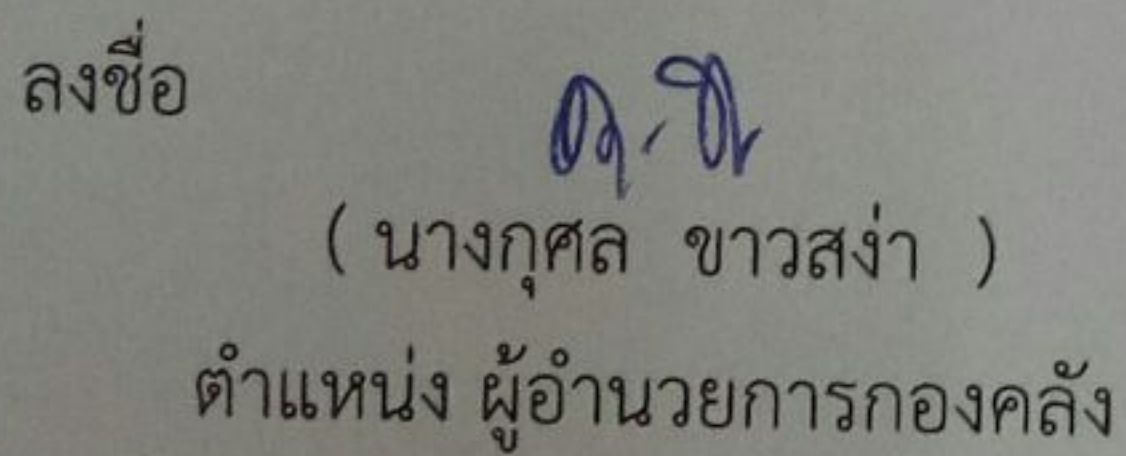 ลงชื่อ
( นางกุศล ขาวสง่า )
ตำแหน่ง ผู้อำนวยการกองคลัง